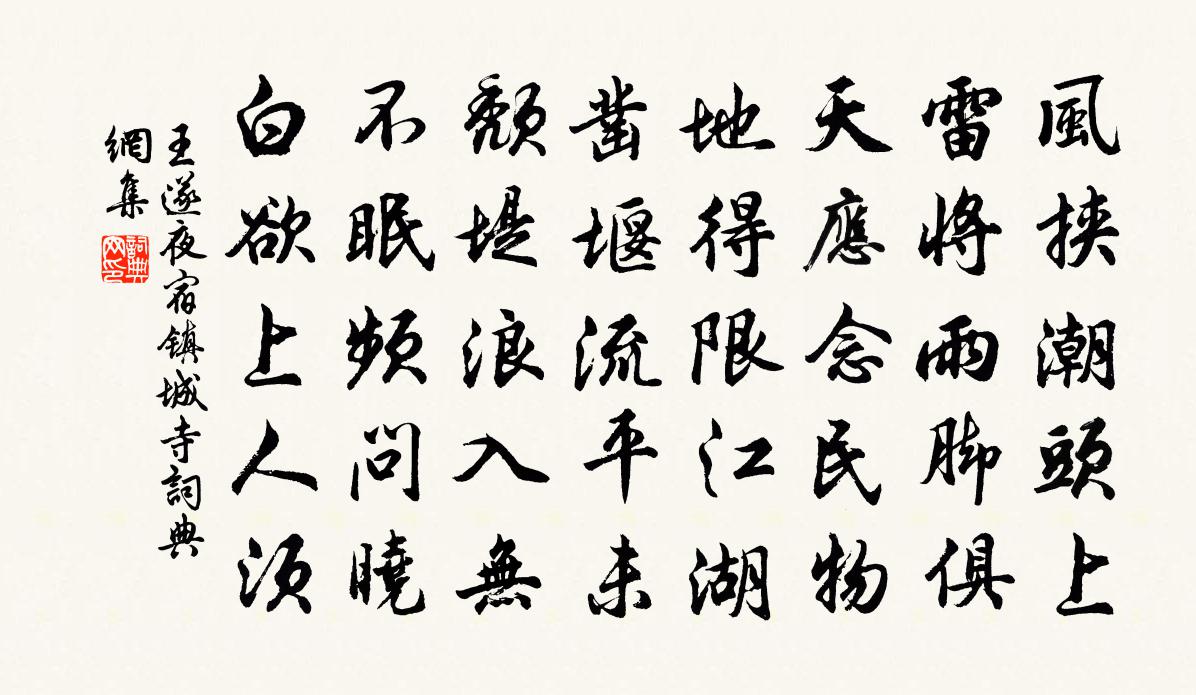 風挾潮頭上
雷將雨脚俱
天應念民物
地得限江湖
凿堰流平未
頽堤浪入無
不眠频問曉
白欲上人须
王遂夜宿鎮城寺詞典
網集
詞典网印